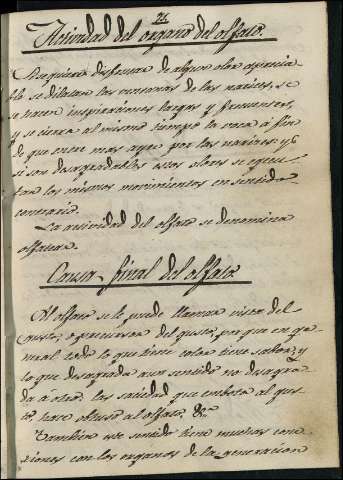 21
Actividad del organo del olfato.
Si se quiere disfrutar de algun olor aprecia
ble se dilatan las ventanas de las narices, se
hacen inspiraciones largas y frecuentes,
y se cierra al mismo tiempo la boca á fin
de que entre mas ayre por las narices: y
si son desagradables estos olores se egecu
tan los mismos movimientos en sentido
contrario.
La actividad del olfato se denomina
olfatear.
Causa final del olfato
Al olfato se le puede llamar vista del
Gusto, o precursor del gusto, por que en ge
neral todo lo que tiene olor tiene sabor; y
lo que desagrada a un sentido no desagra
da á otro: la saciedad que embota al gus
to, hace obtuso al olfato, &c.
Tambien este sentido tiene muchas cone
xiones con los organos de la generacion